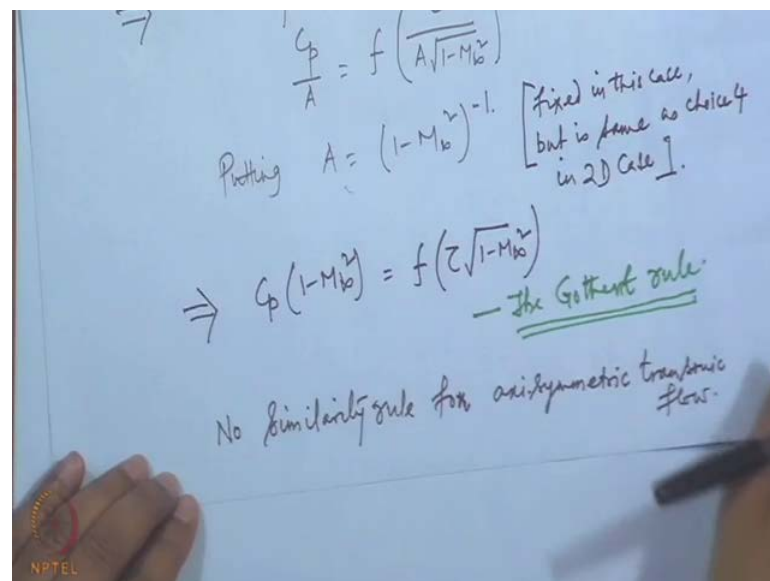 ⇒
Cp/A = f(τ/(A√(1-M∞²)))
Putting A = (1-M∞²)⁻¹. [fixed in this case,
but is same as choice 4
in 2D case].
⇒ Cp(1-M∞²) = f(τ√(1-M∞²))
— The Gothert rule.
No similarity rule for axisymmetric transonic
flow.
NPTEL